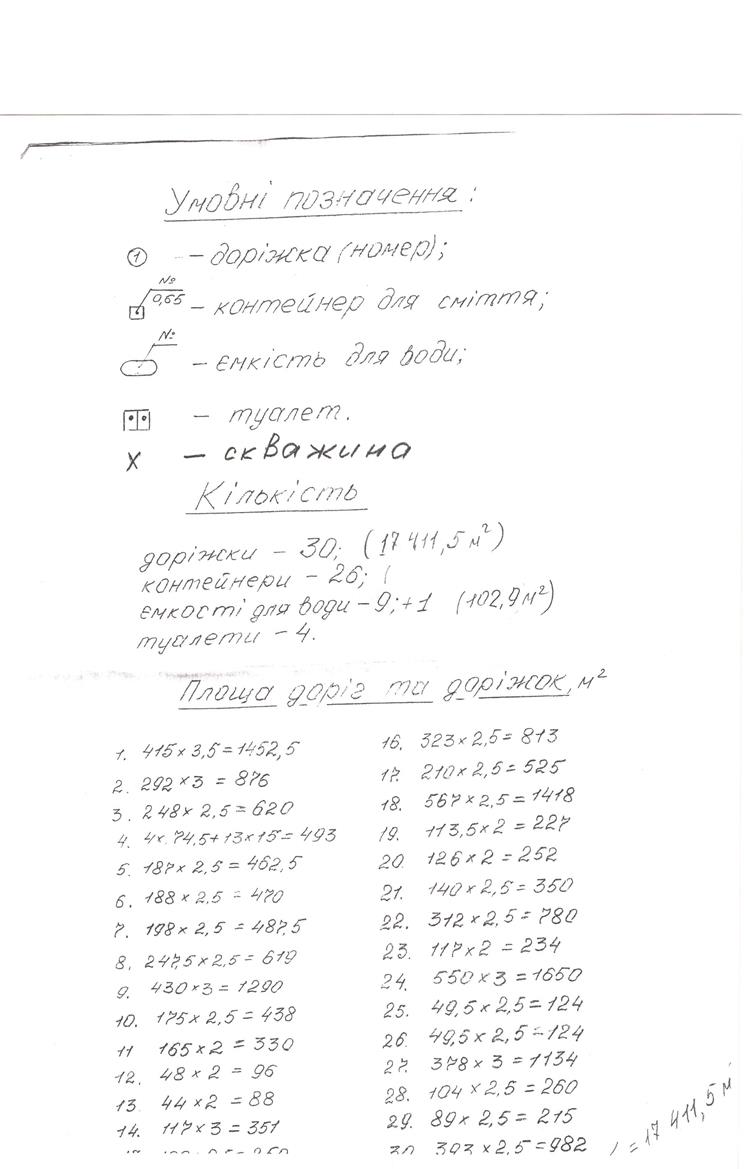 Умовні позначення:
① – доріжка (номер);
№
0,65 – контейнер для сміття;
№
– ємкість для води;
– туалет.
X – скважина
Кількість
доріжки – 30; (17 411,5 м²)
контейнери – 26; (
ємкості для води – 9; +1 (102,9 м²)
туалети – 4.
Площа доріг та доріжок, м²
1. 415 × 3,5 = 1452,5
2. 292 × 3 = 876
3. 248 × 2,5 = 620
4. 4 × 74,5 + 13 × 15 = 493
5. 187 × 2,5 = 462,5
6. 188 × 2,5 = 470
7. 198 × 2,5 = 487,5
8. 247,5 × 2,5 = 619
9. 430 × 3 = 1290
10. 175 × 2,5 = 438
11 165 × 2 = 330
12. 48 × 2 = 96
13. 44 × 2 = 88
14. 117 × 3 = 351
16. 323 × 2,5 = 813
17. 210 × 2,5 = 525
18. 567 × 2,5 = 1418
19. 113,5 × 2 = 227
20. 126 × 2 = 252
21. 140 × 2,5 = 350
22. 312 × 2,5 = 780
23. 117 × 2 = 234
24. 550 × 3 = 1650
25. 49,5 × 2,5 = 124
26. 49,5 × 2,5 = 124
27. 378 × 3 = 1134
28. 104 × 2,5 = 260
29. 89 × 2,5 = 215
30. 393 × 2,5 = 982
= 17 411,5 м